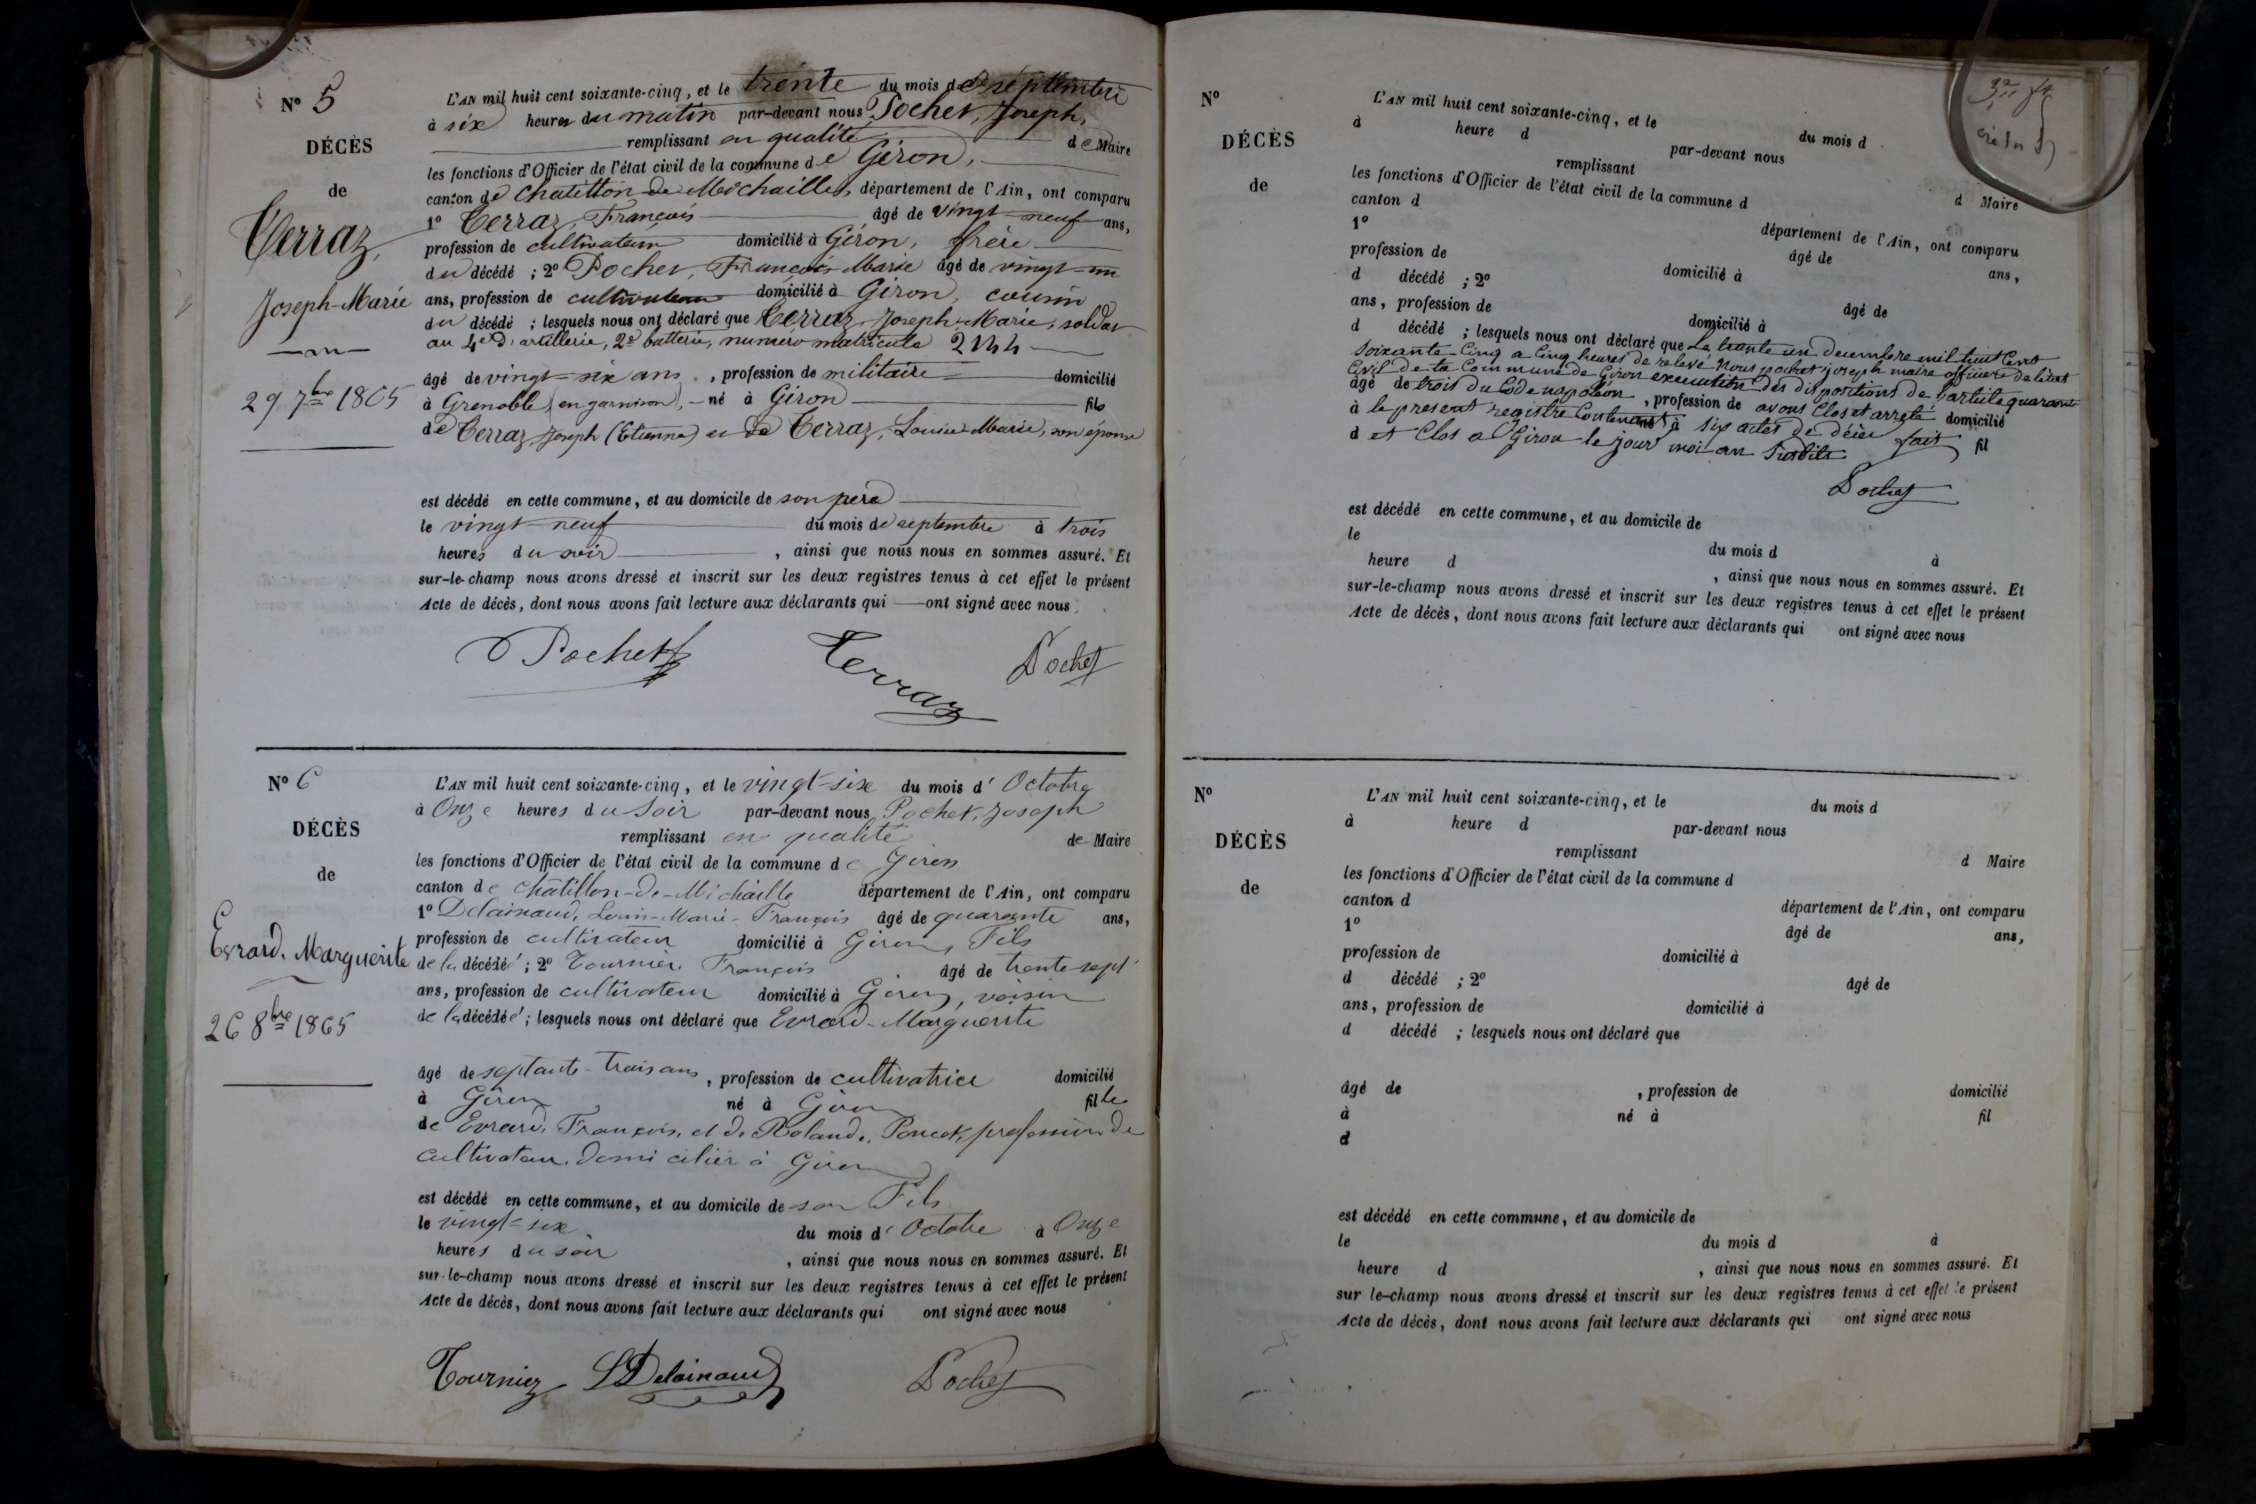 N° 5
DÉCÈS
de
Terraz,
Joseph-Marie
29 7bre 1865
L'AN mil huit cent soixante-cinq, et le trente du mois de septembre
à six heures du matin par-devant nous Pochet, Joseph,
remplissant en qualité de Maire
les fonctions d'Officier de l'état civil de la commune de Giron,
canton de Chatillon-de-Michaille, département de l'Ain, ont comparu
1° Terraz, François âgé de vingt-neuf ans,
profession de cultivateur domicilié à Giron, frère
du décédé ; 2° Pochet, François-Marie âgé de vingt-un
ans, profession de cultivateur domicilié à Giron, cousin
du décédé ; lesquels nous ont déclaré que Terraz, Joseph-Marie, soldat
au 4e d'artillerie, 2e batterie, numéro matricule 2144
âgé de vingt-six ans, profession de militaire domicilié
à Grenoble (en garnison), né à Giron fils
de Terraz, Joseph (Etienne) et de Terraz, Louise Marie, son épouse
est décédé en cette commune, et au domicile de son père
le vingt-neuf du mois de septembre à trois
heures du soir, ainsi que nous nous en sommes assuré. Et
sur-le-champ nous avons dressé et inscrit sur les deux registres tenus à cet effet le présent
Acte de décès, dont nous avons fait lecture aux déclarants qui ont signé avec nous
Pochet Terraz Pochet
N° 6
DÉCÈS
de
Evrard, Marguerite
26 8bre 1865
L'AN mil huit cent soixante-cinq, et le vingt-six du mois d'Octobre
à Onze heures du Soir par-devant nous Pochet, Joseph
remplissant en qualité de Maire
les fonctions d'Officier de l'état civil de la commune de Giron
canton de Châtillon-de-Michaille département de l'Ain, ont comparu
1° Delainaud, Louis-Marie-François âgé de quarante ans,
profession de cultivateur domicilié à Giron, Fils
de la décédé ; 2° Tournier François âgé de trente-sept
ans, profession de cultivateur domicilié à Giron, voisin
de la décédée ; lesquels nous ont déclaré que Evrard-Marguerite
âgé de septante-trois ans, profession de cultivatrice domicilié
à Giron né à Giron fille
de Evrard, François, et de Rolande, Poncet, profession de
cultivateur, domicilier à Giron
est décédé en cette commune, et au domicile de son Fils
le vingt-six du mois d'Octobre à Onze
heures du soir, ainsi que nous nous en sommes assuré. Et
sur-le-champ nous avons dressé et inscrit sur les deux registres tenus à cet effet le présent
Acte de décès, dont nous avons fait lecture aux déclarants qui ont signé avec nous
Tournier LDelainaud Pochet
N°
DÉCÈS
de
L'AN mil huit cent soixante-cinq, et le du mois d
à heure d par-devant nous
remplissant d Maire
les fonctions d'Officier de l'état civil de la commune d
canton d département de l'Ain, ont comparu
1° âgé de ans,
profession de domicilié à
d décédé ; 2° âgé de
ans, profession de domicilié à
d décédé ; lesquels nous ont déclaré que Le trente un decembre mil huit Cent
soixante-Cinq a Cinq heures de relevé Nous pochet joseph maire officiere de l'état
Civil de la Commune de Giron execution des dispositions de l'article quarante
âgé de trois du Code napoléon, profession de avons Clos et arreté domicilié
à le present registre Contenant né à six actes de décès fait
d et Clos a Giron le jour moi an susdits fil
Pochet
est décédé en cette commune, et au domicile de
le du mois d à
heure d , ainsi que nous nous en sommes assuré. Et
sur-le-champ nous avons dressé et inscrit sur les deux registres tenus à cet effet le présent
Acte de décès, dont nous avons fait lecture aux déclarants qui ont signé avec nous
N°
DÉCÈS
de
L'AN mil huit cent soixante-cinq, et le du mois d
à heure d par-devant nous
remplissant d Maire
les fonctions d'Officier de l'état civil de la commune d
canton d département de l'Ain, ont comparu
1° âgé de ans,
profession de domicilié à
d décédé ; 2° âgé de
ans, profession de domicilié à
d décédé ; lesquels nous ont déclaré que
âgé de , profession de domicilié
à né à fil
d
est décédé en cette commune, et au domicile de
le du mois d à
heure d , ainsi que nous nous en sommes assuré. Et
sur le-champ nous avons dressé et inscrit sur les deux registres tenus à cet effet le présent
Acte de décès, dont nous avons fait lecture aux déclarants qui ont signé avec nous